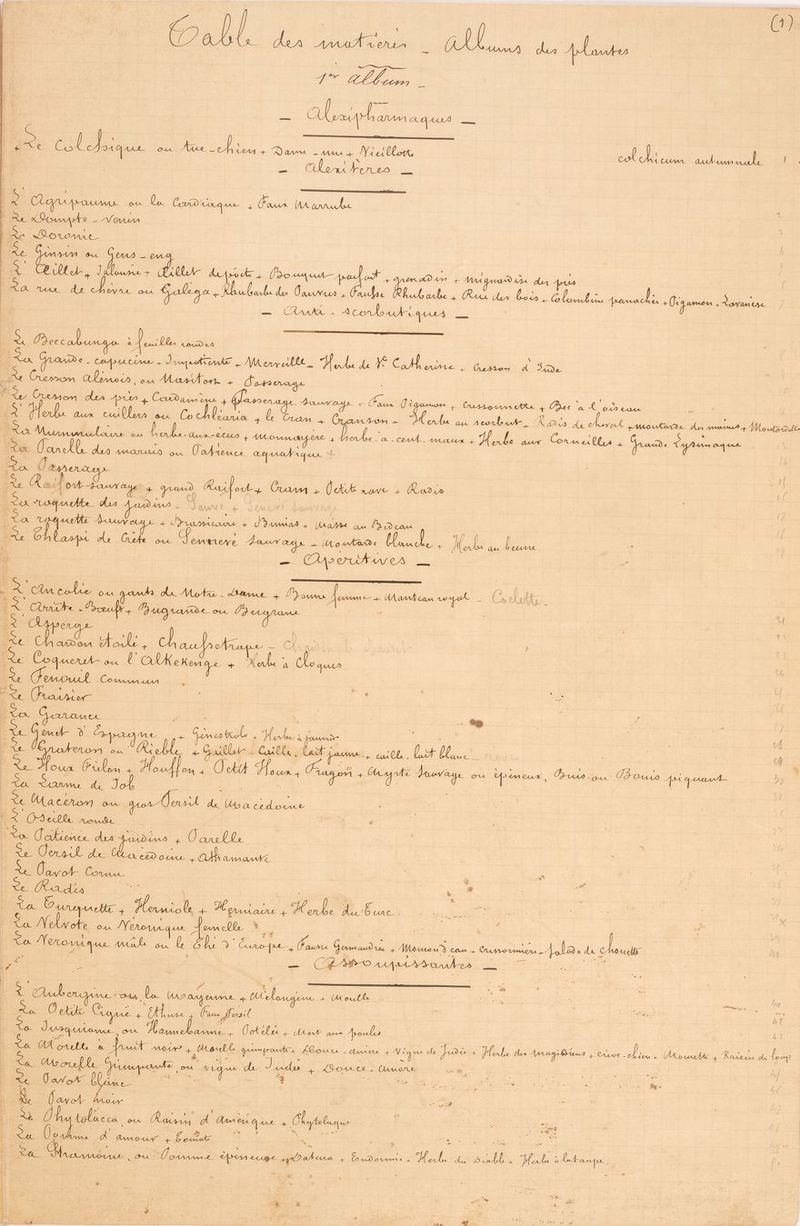 (1)
Table des matières _ Albums des plantes
1er album _
_ Alexipharmaques _
Le Colchique ou tue-chien + Dame-nue + Vieillotte colchicum autumnale 1
_ Alexitères _
L'Agripaume ou la Cardiaque + Faux Marrube
Le Dompte-venin
Le Doronic
Le Ginsin ou Gens-eng
L'Œillet + Jalousie + Œillet de poète + Bouquet parfait + grenadin + mignardise des prés
La rue de chèvre ou Galéga + Rhubarbe des Pauvres + Fausse Rhubarbe + Rue des bois + Colombine panachée + Pigamon + Lavanèse
_ Anti-scorbutiques _
Le Beccabunga à feuilles rondes
La Grande-capucine + Impatiente + Merveille _ Herbe de Ste Catherine + Cresson d'Inde
Le Cresson alénois, ou Nasitort + Passerage
Le Cresson des prés + Cardamine + Passerage sauvage + Faux Pigamon + Cressonnette + Bec à l'oiseau
L'Herbe aux cuillers ou Cochléaria + le Cran + Cranson + Herbe au scorbut + Radis de cheval + moutarde des moines + Moutardelle
La Nummulaire ou herbe-aux-écus + monnayère + herbe-à-cent-maux + Herbe aux Corneilles + Grande Lysimaque
La Parelle des marais ou Patience aquatique
La Passerage
Le Raifort sauvage + grand Raifort + Cram + Petite rave + Radis
La roquette des jardins
La roquette sauvage + Brassicaire + Bunias + Masse au Bedeau
Le Thlaspi de Crète ou Sennevé sauvage + moutarde blanche + Herbe au beurre
_ Apéritives _
L'Ancolie ou gants de Notre-Dame + Bonne femme + Manteau royal
L'Arrête-Bœuf + Bugrande ou Bugrane
L'Asperge
Le Chardon étoilé + Chaussetrape
Le Coqueret ou l'Alkekenge + Herbe à Cloques
Le Fenouil Commun
Le Fraisier
La Garance
Le Genet d'Espagne + Ginestrole + Herbe à jaunir
Le Grateron ou Rièble + Gaillet + Caille-lait jaune + caille-lait blanc
Le Houx Frelon + Houffon + Petit Houx + Fragon + Myrte sauvage ou épineux, Buis ou Bouis piquant
La Larme de Job
Le Maceron ou gros Persil de Macédoine
L'Oseille ronde
La Patience des jardins + Parelle
Le Persil de Macédoine + Athamante
Le Pavot Cornu
Le Radis
La Turquette + Herniole + Herniaire + Herbe du Turc
La Velvote ou Véronique femelle
La Véronique mâle ou le Thé d'Europe + Fausse Germandrée + Mouron d'eau + Cressonnière + Salade de Chouette
_ Assoupissantes _
L'Aubergine ou la mayenne + Mélongène + Morelle
La Petite Ciguë + Ethuse + Faux Persil
La Jusquiame ou Hannebanne + Potelée + Mort aux poules
La Morelle à fruit noir + Morelle grimpante + Douce-amère + Vigne de Judée + Herbe des Magiciens + crève-chien + Mourelle + Raisin de loup
La Morelle Grimpante, ou vigne de Judée + Douce-amère
Le Pavot blanc
Le Pavot noir
Le Phytolacca ou Raisin d'Amérique + Phytolaque
La Pomme d'amour + Tomate
La Stramoine, ou Pomme épineuse + Datura + Endormie + Herbe du Diable + Herbe à la taupe